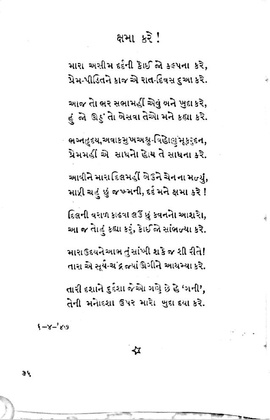 ક્ષમા કરે !
મારા અસીમ દર્દની કોઈ જો કલ્પના કરે,
પ્રેમ-પીડિતને કાજ એ રાત-દિવસ દુઆ કરે.
આજ તો ભર સભામહીં એવું બને ખુદા કરે,
હું જો ઊઠું તો બેસવા તેઓ મને કહ્યા કરે.
ભગ્નહૃદય, અવાકમુખ અશ્રુ-વિહોણું મૂક રુદન,
પ્રેમમહીં એ સાધનો હોય તે સાધના કરે.
આવીને મારા દિલમહીં એઉને ચેન ના મળ્યું,
માફી ચહું છું જખ્મની, દર્દ મને ક્ષમા કરે !
દિલની વરાળ કાઢવા લઉં છું કવનનો આશરો,
આ જ તો હું કહ્યા કરું, કોઈ જો સાંભળ્યા કરે.
મારા ઉદયને આભ તું સાંખી શકે જ શી રીતે !
તારા એ સૂર્ય-ચંદ્ર જ્યાં ઊગીને આથમ્યા કરે.
તારી દશાને દુર્દશા જેઓ ગણે છે હે ‘ગની’,
તેની મનોદશા ઉપર મારો ખુદા દયા કરે.
૬-૪-’૪૭
૩૬